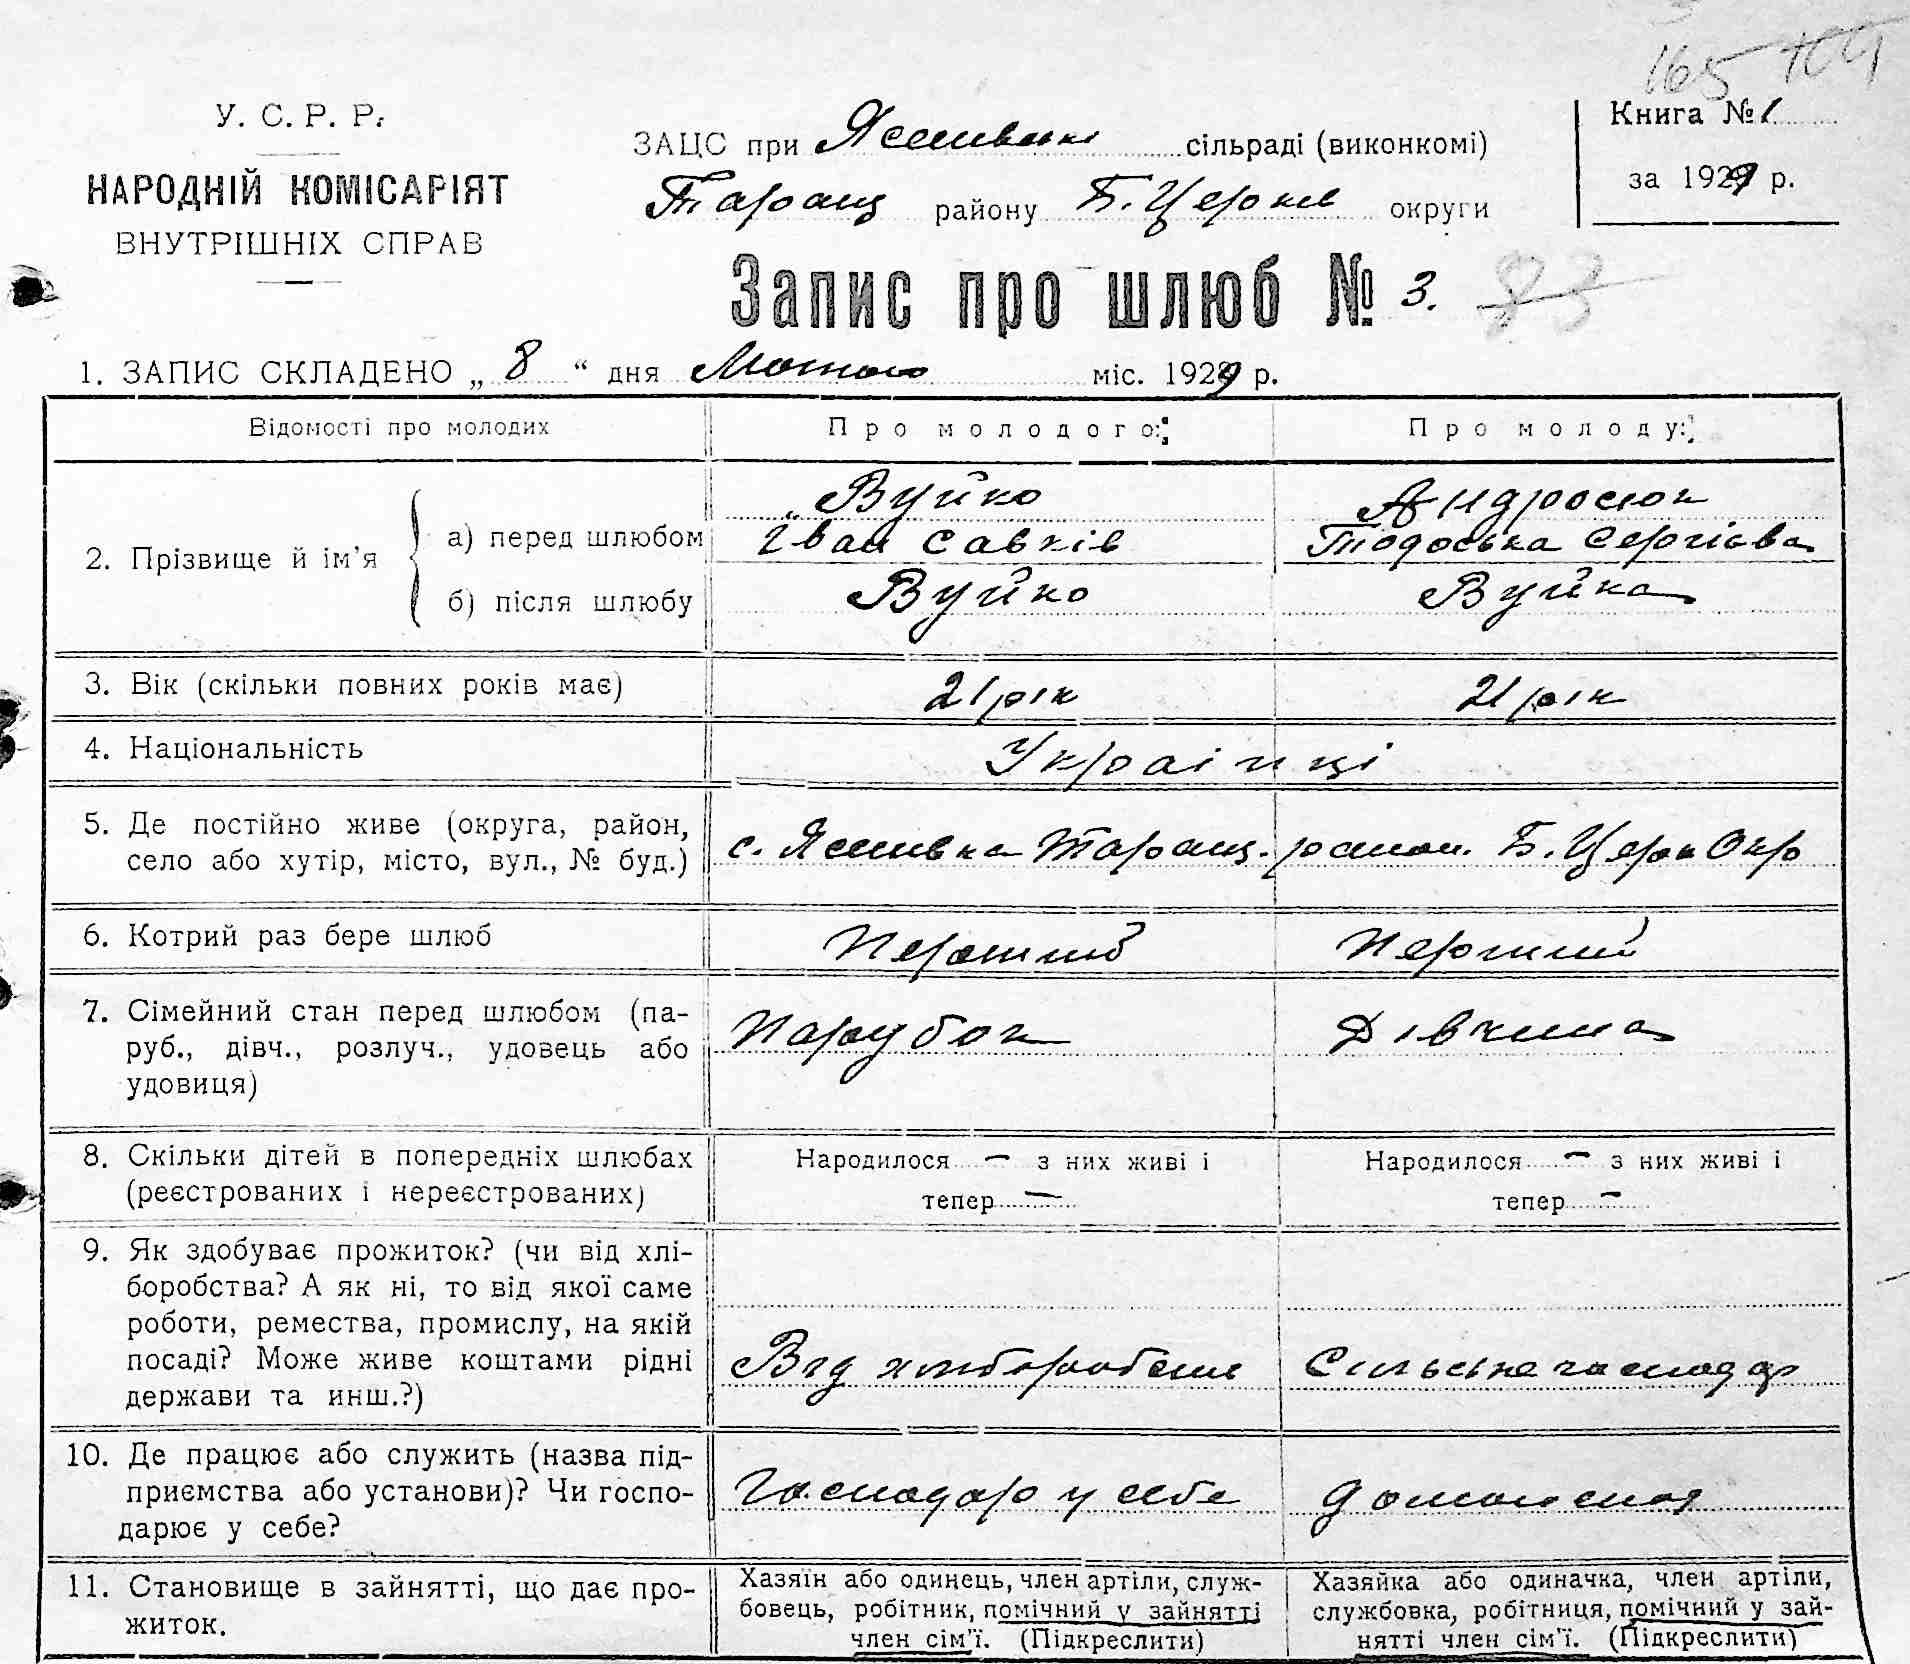 165 104
У. С. Р. Р.
НАРОДНІЙ КОМІСАРІЯТ
ВНУТРІШНІХ СПРАВ
ЗАЦС при сільраді (виконкомі)
Таращ району Б. Церків округи
Книга № 1
за 1929 р.
Запис про шлюб № 3. 83
1. ЗАПИС СКЛАДЕНО „ 8 “ дня Лютого міс. 1929 р.
Відомості про молодих
Про молодого:
Про молоду:
2. Прізвище й ім’я
а) перед шлюбом
б) після шлюбу
Вуйко
Іван Савків
Вуйко
Андросюк
Тодоська Сергієва
Вуйка
3. Вік (скільки повних років має)
21 рік
21 рік
4. Національність
Українці
5. Де постійно живе (округа, район,
село або хутір, місто, вул., № буд.)
с. Таращ. район. Б. Церк Окр
6. Котрий раз бере шлюб
Перший
Перший
7. Сімейний стан перед шлюбом (па-
руб., дівч., розлуч., удовець або
удовиця)
Парубок
Дівчина
8. Скільки дітей в попередніх шлюбах
(реєстрованих і нереєстрованих)
Народилося — з них живі і
тепер —
Народилося — з них живі і
тепер —
9. Як здобуває прожиток? (чи від хлі-
боробства? А як ні, то від якої саме
роботи, ремества, промислу, на якій
посаді? Може живе коштами рідні
держави та инш.?)
Від
Сильське господар
10. Де працює або служить (назва під-
приємства або установи)? Чи госпо-
дарює у себе?
Господар у себе
11. Становище в зайнятті, що дає про-
житок.
Хазяїн або одинець, член артіли, служ-
бовець, робітник, помічний у зайнятті
член сім’ї. (Підкреслити)
Хазяйка або одиначка, член артіли,
службовка, робітниця, помічний у зай-
нятті член сім’ї. (Підкреслити)